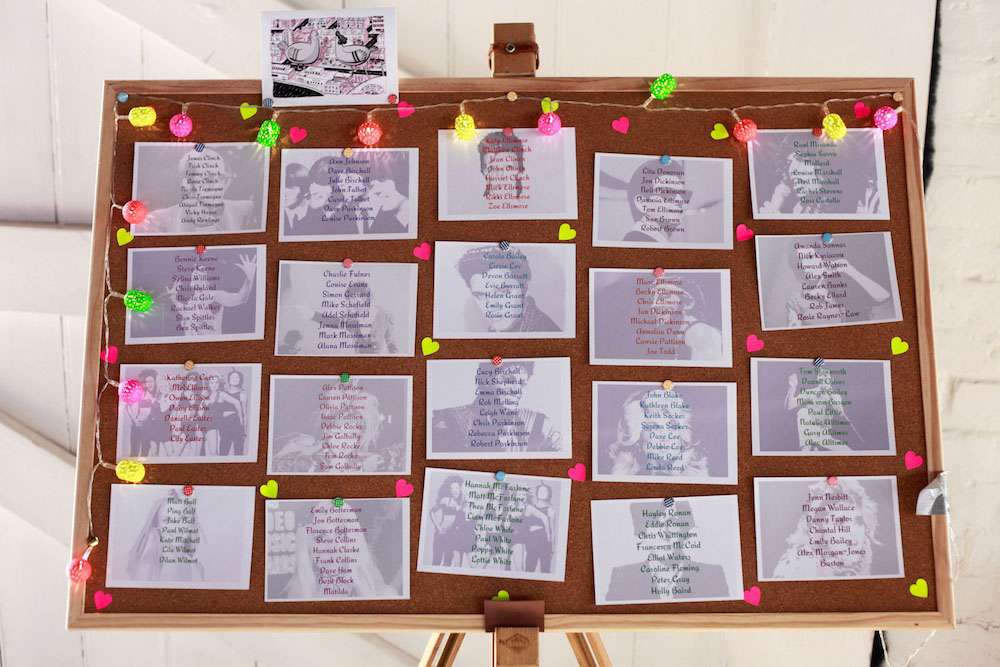 James Clinch
Trish Clinch
Tommy Clinch
Rose Clinch
Nicola Ternague
Chris Ternague
Abigail Ternague
Vicky House
Andy Rowland
Ann Johnson
Dave Birchall
Julie Birchall
John Talbot
Carole Talbot
Dave Parkinson
Louise Parkinson
Katy Ellimore
Matthew Clinch
Jean Clinch
John Clinch
Harriet Clinch
Mick Ellimore
Rikki Ellimore
Zoe Ellimore
Gita Donovan
Jon Dickinson
Neil Dickinson
Pamela Ellimore
Tom Ellimore
Sam Brown
Robert Brown
Raul Miranda
Sophia
Mallard
Louise Marshall
Neil Marshall
Rachel Stevens
Ross Costello
Bonnie Keene
Steve Keene
Selina Williams
Chris Hyland
Nicola Gale
Rachael Walker
Stan Spittles
Ben Spittles
Charlie Fulner
Louise Evans
Simon Gerrard
Mike Schofield
Adel Schofield
Jenna Mossman
Mark Mossman
Alana Mossman
Carole Bailey
Lizzie Lev
Devon Barratt
Evie Barratt
Helen Grant
Emily Grant
Rosie Grant
Marc Ellimore
Becky Ellimore
Chris Ellimore
Ian Dickinson
Michael Dickinson
Annelisa Dunn
Lawrie Pattison
Joe Todd
Amanda Sannar
Nick Kyriacou
Howard Watson
Alex Smith
Lauren Banks
Becky Ellard
Rob James
Rosie Rayner-Law
Katherine Carr
Mel Ellison
Owen Ellison
Daisy Ellison
Danielle Laiter
Paul Laiter
Lily Laiter
Alex Pattison
Lauren Pattison
Olivia Pattison
Isaac Pattison
Debbie Rocke
Jim Golbally
Chloe Rocke
Tim Rocke
Sam Golbally
Lucy Birchall
Nick Shepherd
Emma Birchall
Rob Melling
Leigh Wane
Chris Parkinson
Rebecca Parkinson
Robert Parkinson
John Blake
Kathleen Blake
Keith Secker
Susana Secker
Dave Lee
Debbie Lee
Mike Reed
Linda Reed
Tom Skipworth
Darrell Oliver
Duncan Bailey
Mimi von Sacsan
Paul Little
Natalie Altimar
Gary Altimar
Alec Altimar
Matt Ball
Ping Ball
Jake Ball
Paul Wilmot
Kate Mitchell
Lila Wilmot
Dilan Wilmot
Emily Botterman
Jon Botterman
Florence Botterman
Steve Collins
Hannah Clarke
Frank Collins
Dave Ham
Basil Block
Matilda
Hannah McFarlane
Matt McFarlane
Thea McFarlane
Liam McFarlane
Chloe White
Paul White
Poppy White
Lottie White
Hayley Ronan
Eddie Ronan
Chris Whittington
Francesca McCaid
Elliot Waters
Caroline Fleming
Peter Gray
Holly Baird
Jenn Nesbitt
Megan Wallace
Danny Taylor
Chantal Hill
Emily Bailey
Alex Morgan-Jones
Buston